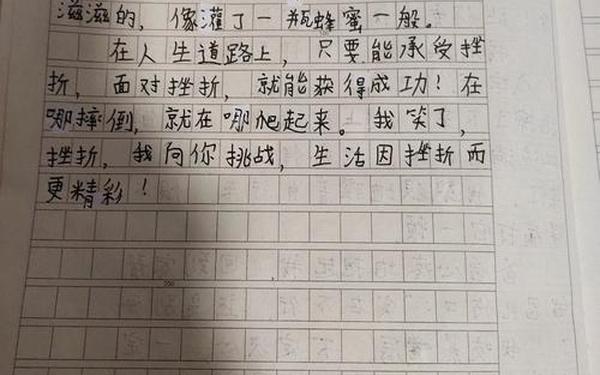 滋滋的，像灌了一瓶蜂蜜一般。
在人生道路上，只要能承受挫
折，面对挫折，就能获得成功！在
哪摔倒，就在哪爬起来。我笑了，
挫折，我向你挑战，生活因挫折而
更精彩！